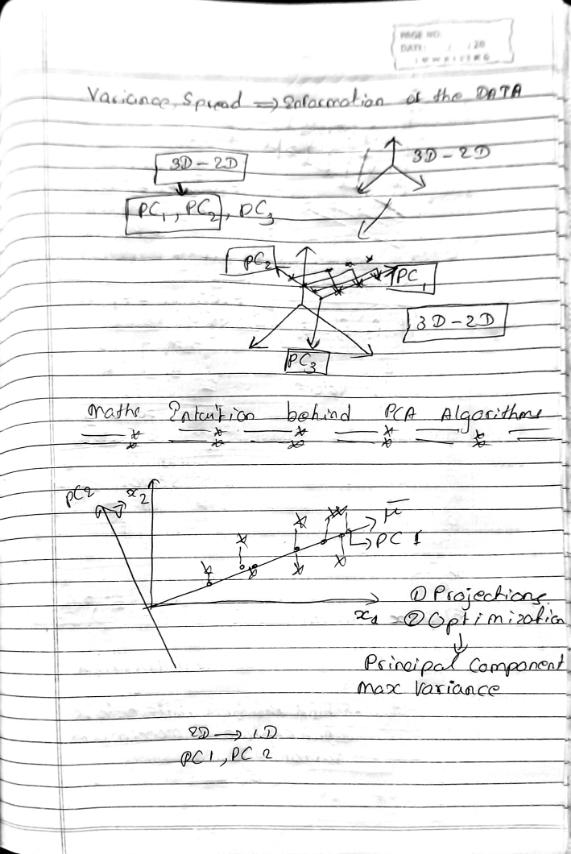 PAGE NO.
DATE: / /20
Variance, Spread => Information of the DATA
3D - 2D
3D - 2D
PC1, PC2, PC3
PC2
PC1
3D - 2D
PC3
Maths Intuition behind PCA Algorithms
PC2
x2
μ
PC 1
① Projections
x1
② Optimization
Principal Component
Max Variance
2D → 1D
PC1, PC2